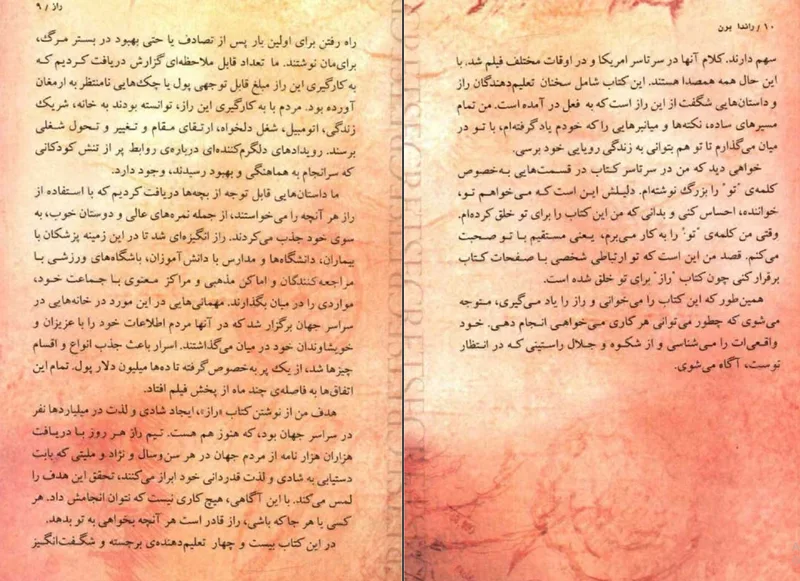 راز / ۹
راه رفتن برای اولین بار پس از تصادف یا حتی بهبود در بستر مرگ،
برای‌مان نوشتند. ما تعداد قابل ملاحظه‌ای گزارش دریافت کردیم که
به کارگیری این راز مبلغ قابل توجهی پول یا چک‌هایی نامنتظر به ارمغان
آورده بود. مردم با به کارگیری این راز، توانسته بودند به خانه، شریک
زندگی، اتومبیل، شغل دلخواه، ارتقای مقام و تغییر و تحول شغلی
برسند. رویدادهای دلگرم‌کننده‌ای درباره‌ی روابط پر از تنش کودکانی
که سرانجام به هماهنگی و بهبود رسیدند، وجود دارد.
ما داستان‌هایی قابل توجه از بچه‌ها دریافت کردیم که با استفاده از
راز هر آنچه را می‌خواستند، از جمله نمره‌های عالی و دوستان خوب، به
سوی خود جذب می‌کردند. راز انگیزه‌ای شد تا در این زمینه پزشکان با
بیماران، دانشگاه‌ها و مدارس با دانش‌آموزان، باشگاه‌های ورزشی با
مراجعه‌کنندگان و اماکن مذهبی و مراکز معنوی با جماعت خود،
مواردی را در میان بگذارند. مهمانی‌هایی در این مورد در خانه‌هایی در
سراسر جهان برگزار شد که در آنها مردم اطلاعات خود را با عزیزان و
خویشاوندان خود در میان می‌گذاشتند. اسرار باعث جذب انواع و اقسام
چیزها شد، از یک پر به‌خصوص گرفته تا ده‌ها میلیون دلار پول. تمام این
اتفاق‌ها به فاصله‌ی چند ماه از پخش فیلم افتاد.
هدف من از نوشتن کتاب «راز»، ایجاد شادی و لذت در میلیاردها نفر
در سراسر جهان بود، که هنوز هم هست. تیم راز هر روز با دریافت
هزاران هزار نامه از مردم جهان در هر سن‌وسال و نژاد و ملیتی که بابت
دستیابی به شادی و لذت قدردانی خود ابراز می‌کنند، تحقق این هدف را
لمس می‌کند. با این آگاهی، هیچ کاری نیست که نتوان انجامش داد. هر
کسی یا هر جا که باشی، راز قادر است هر آنچه بخواهی به تو بدهد.
در این کتاب بیست و چهار تعلیم‌دهنده‌ی برجسته و شگفت‌انگیز
۱۰ / راندا برن
سهم دارند. کلام آنها در سرتاسر امریکا و در اوقات مختلف فیلم شد. با
این حال همه همصدا هستند. این کتاب شامل سخنان تعلیم‌دهندگان راز
و داستان‌هایی شگفت از این راز است که به فعل در آمده است. من تمام
مسیرهای ساده، نکته‌ها و میانبرهایی را که خودم یاد گرفته‌ام، با تو در
میان می‌گذارم تا تو هم بتوانی به زندگی رویایی خود برسی.
خواهی دید که من در سرتاسر کتاب در قسمت‌هایی به‌خصوص
کلمه‌ی "تو" را بزرگ نوشته‌ام. دلیلش این است که می‌خواهم تو،
خواننده، احساس کنی و بدانی که من این کتاب را برای تو خلق کرده‌ام.
وقتی من کلمه‌ی "تو" را به کار می‌برم، یعنی مستقیم با تو صحبت
می‌کنم. قصد من این است که تو ارتباطی شخصی با صفحات کتاب
برقرار کنی چون کتاب "راز" برای تو خلق شده است.
همین‌طور که این کتاب را می‌خوانی و راز را یاد می‌گیری، متوجه
می‌شوی که چطور می‌توانی هر کاری می‌خواهی انجام دهی. خود
واقعی‌ات را می‌شناسی و از شکوه و جلال راستینی که در انتظار
توست، آگاه می‌شوی.